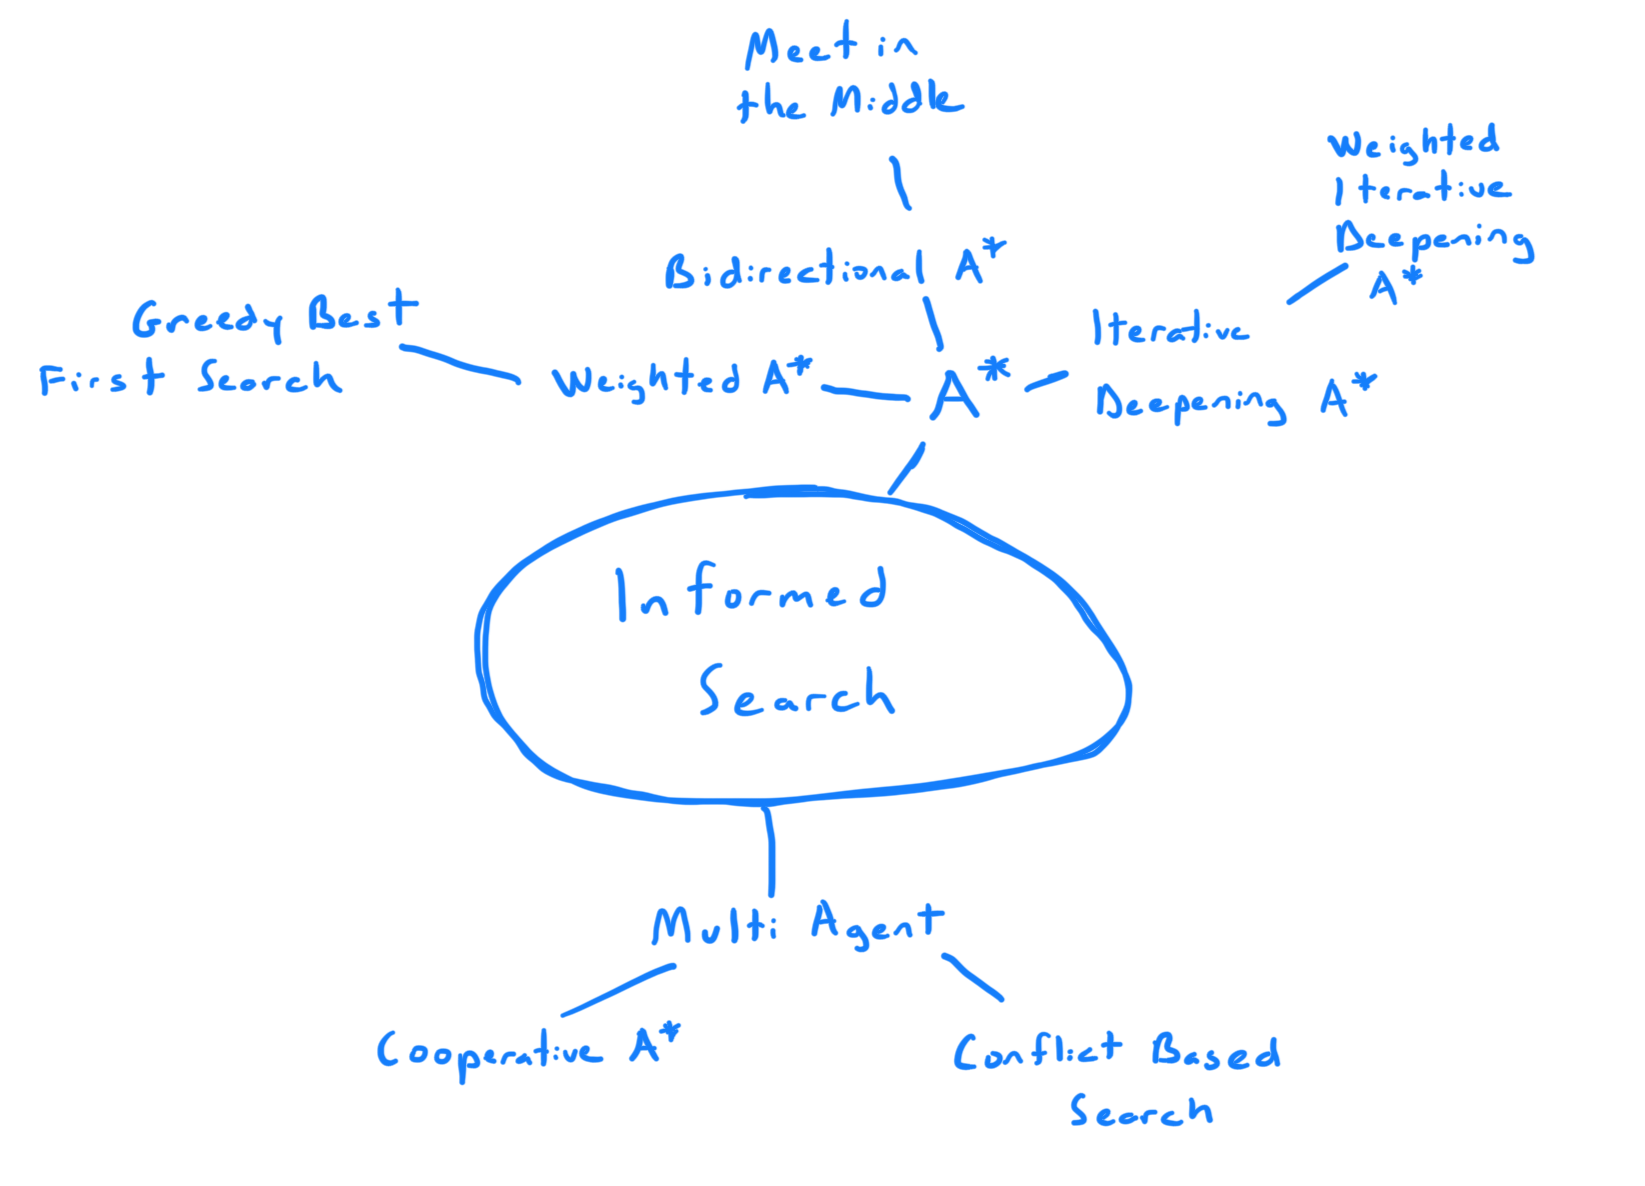 Meet in
the Middle
Weighted
Iterative
Deepening
A*
Bidirectional A*
Greedy Best
First Search
Weighted A*
A*
Iterative
Deepening A*
Informed
Search
Multi Agent
Cooperative A*
Conflict Based
Search